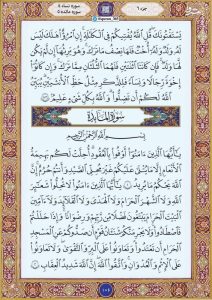 سوره نساء ٤
سوره مائده ٥
جزء ٦
يَسْتَفْتُونَكَ قُلِ اللَّهُ يُفْتِيكُمْ فِي الْكَلَالَةِ إِنِ امْرُؤٌا هَلَكَ لَيْسَ
لَهُ وَلَدٌ وَلَهُ أُخْتٌ فَلَهَا نِصْفُ مَا تَرَكَ وَهُوَ يَرِثُهَا إِن لَّمْ يَكُن
لَّهَا وَلَدٌ فَإِن كَانَتَا اثْنَتَيْنِ فَلَهُمَا الثُّلُثَانِ مِمَّا تَرَكَ وَإِن كَانُوا
إِخْوَةً رِّجَالًا وَنِسَاءً فَلِلذَّكَرِ مِثْلُ حَظِّ الْأُنثَيَيْنِ يُبَيِّنُ
اللَّهُ لَكُمْ أَن تَضِلُّوا وَاللَّهُ بِكُلِّ شَيْءٍ عَلِيمٌ ١٧٦
سُورَةُ الْمَائِدَةِ
بِسْمِ اللَّهِ الرَّحْمَٰنِ الرَّحِيمِ
يَا أَيُّهَا الَّذِينَ آمَنُوا أَوْفُوا بِالْعُقُودِ أُحِلَّتْ لَكُم بَهِيمَةُ
الْأَنْعَامِ إِلَّا مَا يُتْلَىٰ عَلَيْكُمْ غَيْرَ مُحِلِّي الصَّيْدِ وَأَنتُمْ حُرُمٌ إِنَّ
اللَّهَ يَحْكُمُ مَا يُرِيدُ ١ يَا أَيُّهَا الَّذِينَ آمَنُوا لَا تُحِلُّوا شَعَائِرَ
اللَّهِ وَلَا الشَّهْرَ الْحَرَامَ وَلَا الْهَدْيَ وَلَا الْقَلَائِدَ وَلَا آمِّينَ
الْبَيْتَ الْحَرَامَ يَبْتَغُونَ فَضْلًا مِّن رَّبِّهِمْ وَرِضْوَانًا وَإِذَا حَلَلْتُمْ
فَاصْطَادُوا وَلَا يَجْرِمَنَّكُمْ شَنَآنُ قَوْمٍ أَن صَدُّوكُمْ عَنِ الْمَسْجِدِ
الْحَرَامِ أَن تَعْتَدُوا وَتَعَاوَنُوا عَلَى الْبِرِّ وَالتَّقْوَىٰ وَلَا تَعَاوَنُوا
عَلَى الْإِثْمِ وَالْعُدْوَانِ وَاتَّقُوا اللَّهَ إِنَّ اللَّهَ شَدِيدُ الْعِقَابِ ٢
١٠٦